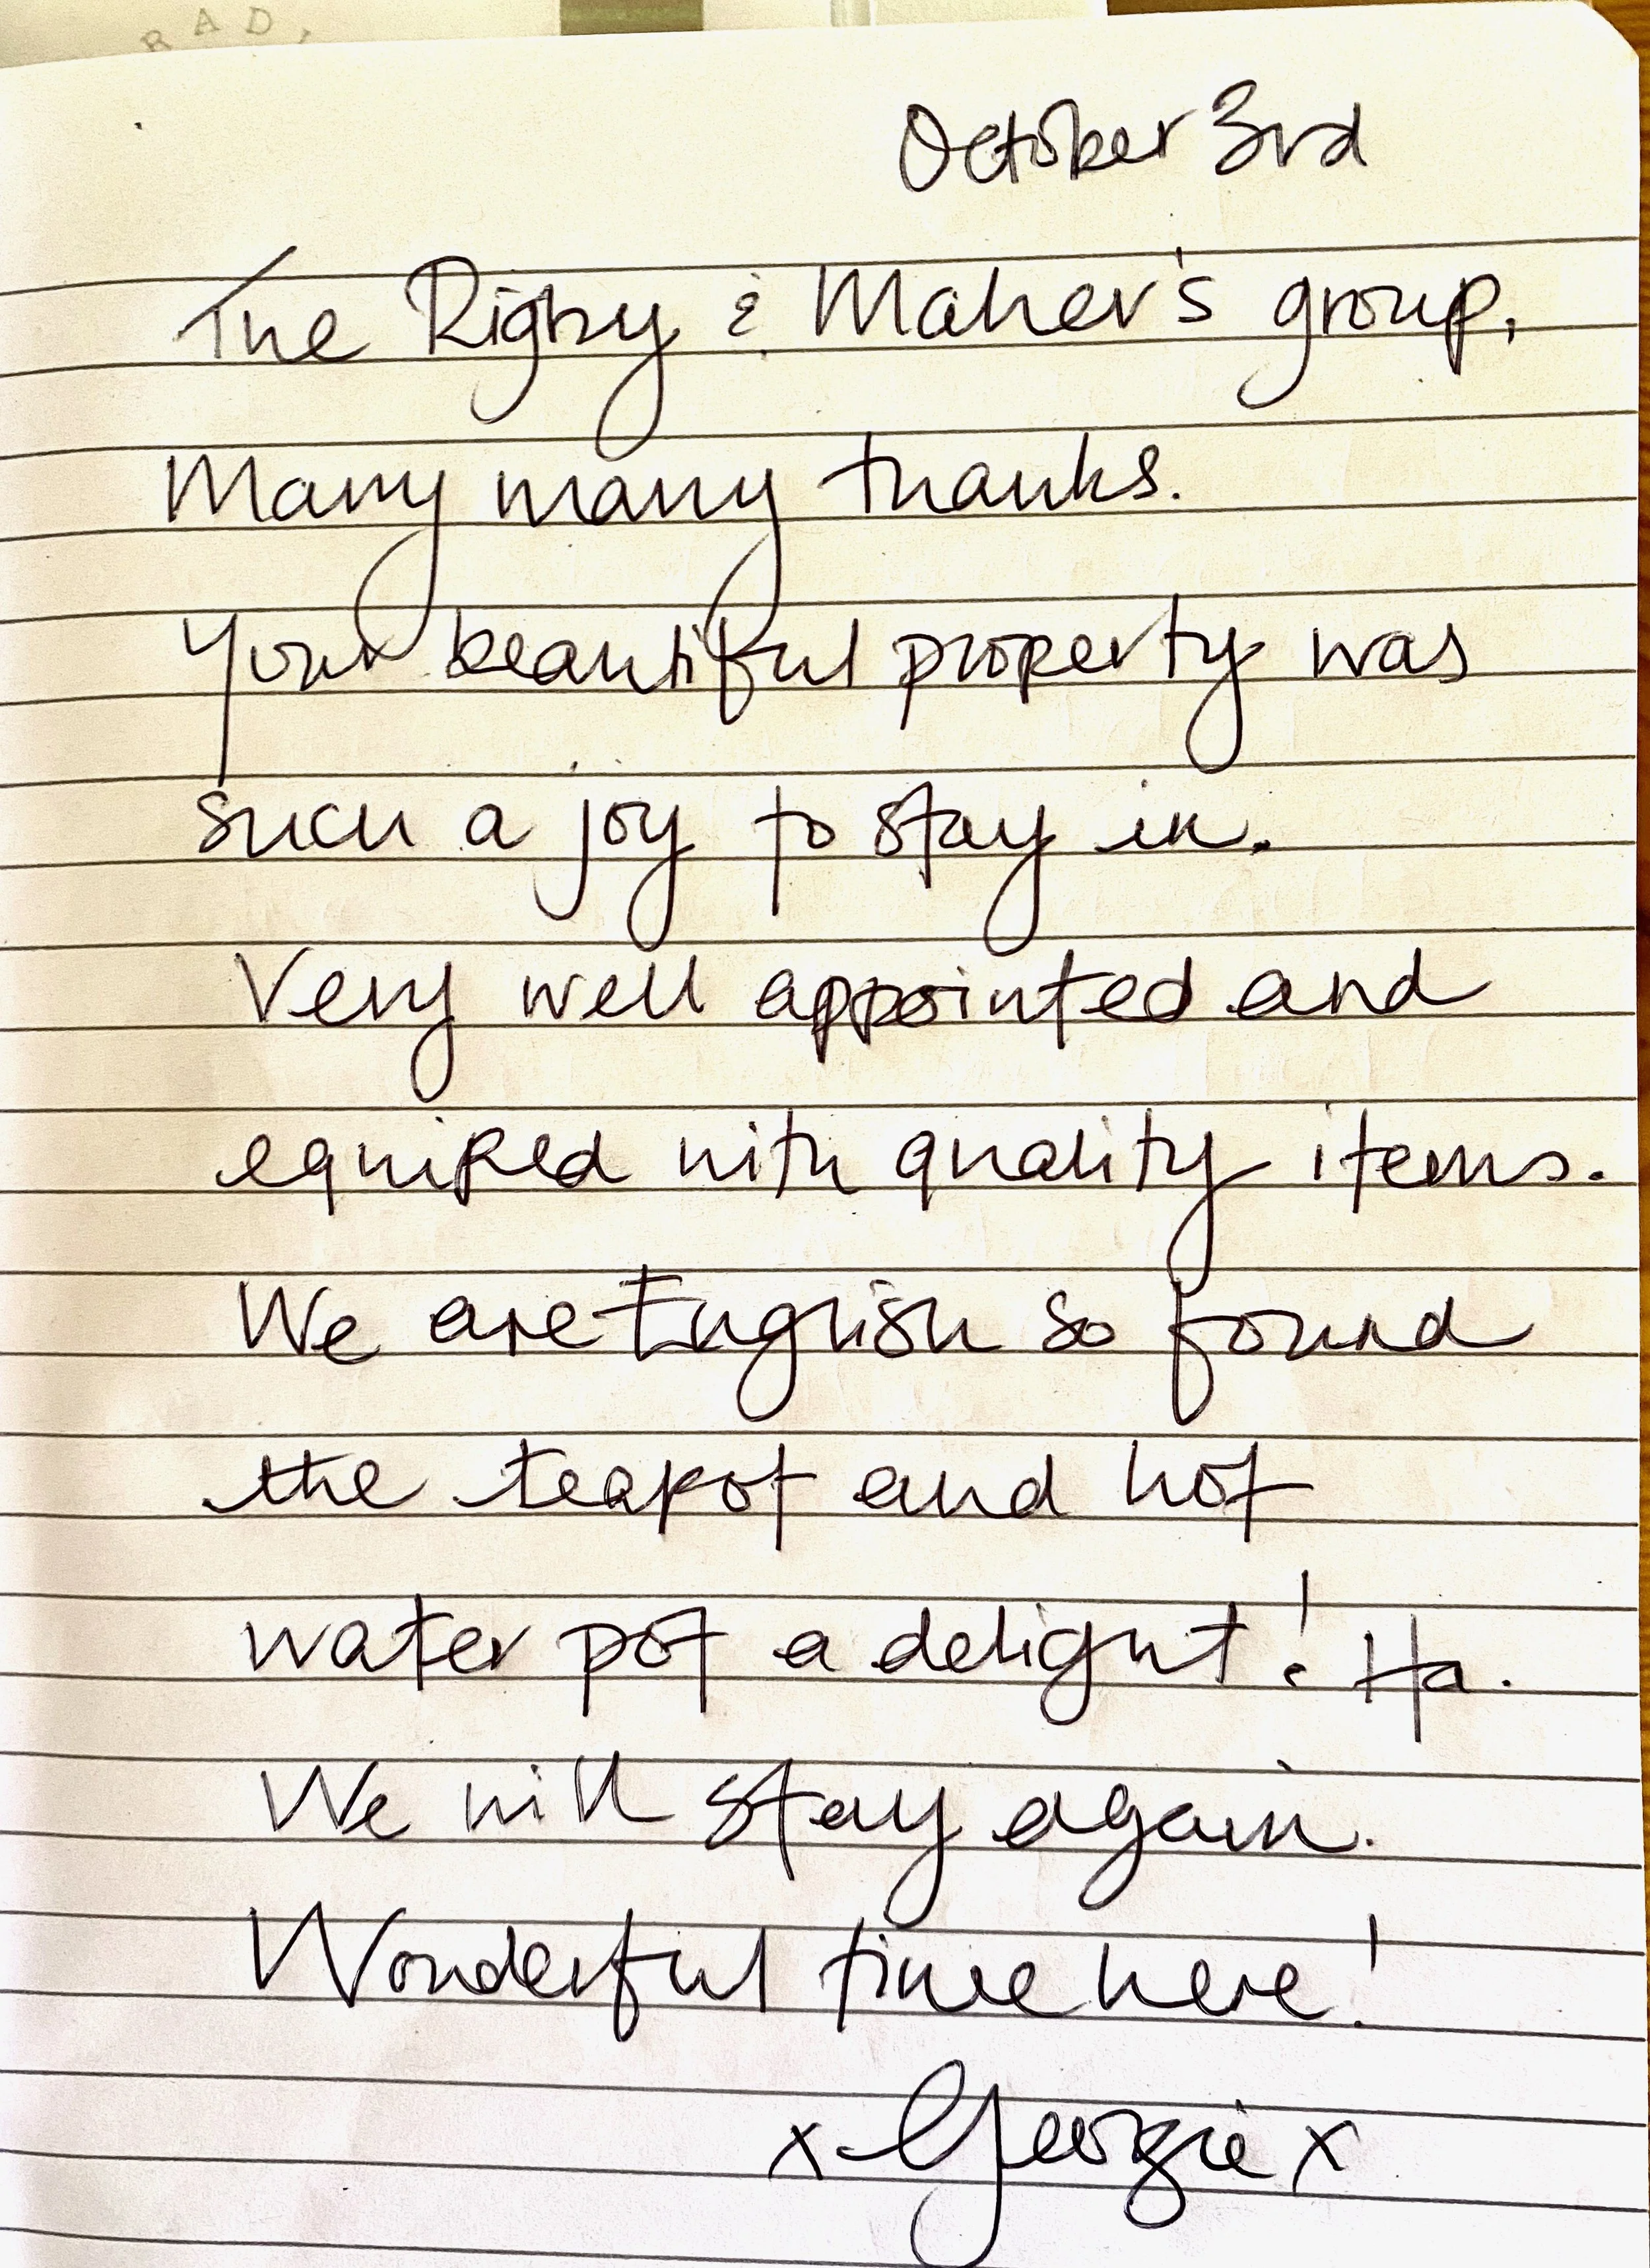 RAD,
October 3rd
The Rigby & Maher's group,
Many many thanks.
Your beautiful property was
such a joy to stay in.
Very well appointed and
equiped with quality items.
We are English so found
the teapot and hot
water pot a delight! Ha.
We will stay again.
Wonderful time here!
x Georgie x